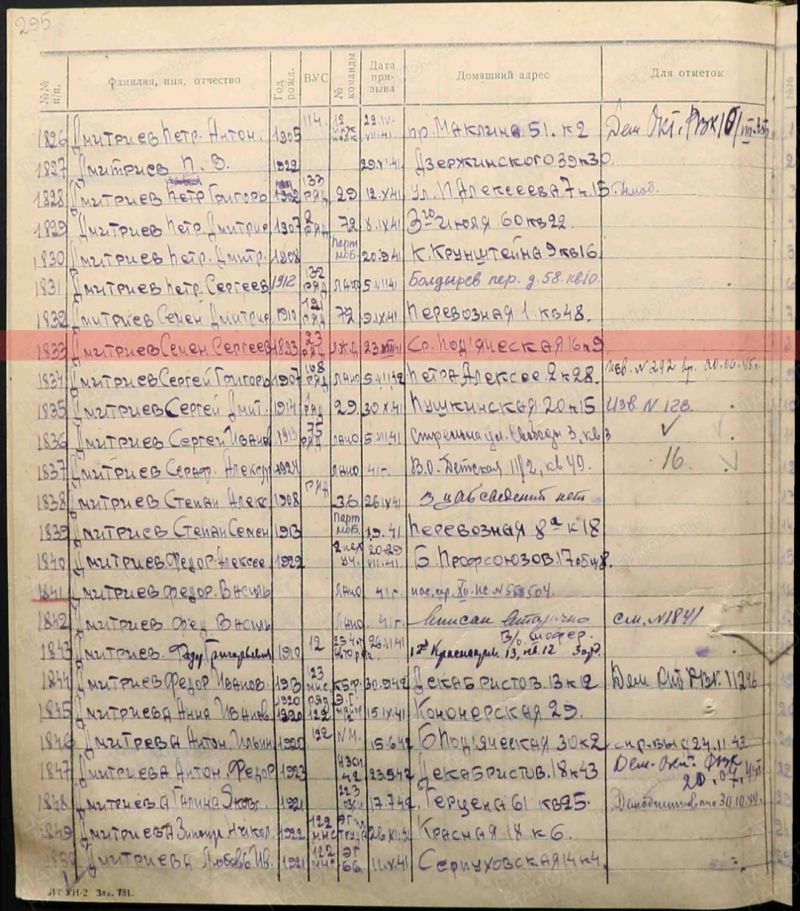 295
№№ п/п. Фамилия, имя, отчество Год рожд. ВУС № команды Дата призыва Домашний адрес Для отметок
1826 Дмитриев Петр. Антон. 1905 114 12 29.IV. VII-41 пр. Маклина 51. к2 Дем. Окт. РВК
1827 Дмитриев П. В. 1922 29.XI 41 Дзержинского 39 к 30.
1828 Дмитриев Петр Григорь 1902 133 РЯД 29 12.X41
1829 Дмитриев Петр. Дмитрие 1907 2 РЯД 72 8.IX41 3го Июля 60 кв 22
1830 Дмитриев Петр. Дмитр. 1908 Парт моб. 20.9.41 К. Крунштейна 9 кв 16
1831 Дмитриев Петр. Сергеев 1912 132 РЯД ЛАНО 5.VII41 Болдырев пер. д. 58. кв 10.
1832 Дмитриев Семен Дмитрие 1910 121 РЯД 72 9.IX41 Перевозная 1. кв 48.
1833 Дмитриев Семен Сергеев 23 РЯД Ср. Подъяческая 16 к 9
1834 Дмитриев Сергей Григорь 1907 108 РЯД ЛАНО 5.VII42 Петра Алексее. 2 к 28. Изв. N 292 вр. 20.06.45г.
1835 Дмитриев Сергей Дмит. 1914 1 РЯД 29 30.X41 Пушкинская 20 к 15 Изв. N 123.
1836 Дмитриев Сергей Иванов 1913 75 РЯД ЛАНО 5.VII41 Стрельна ул. Свободы 3, кв 3 ✓
1837 Дмитриев Сераф. Алексдр 1924 ЛАНО 41 г. В.О. Детская 11/2, кв 40. 16. ✓
1838 Дмитриев Степан Алекс. 1908 РЯД 36 26.IX41 сведений нет
1839 Дмитриев Степан Семен 1913 Парт моб. 19.41 Перевозная 8а к 18
1840 Дмитриев Федор Алексее 1922 20-29 VII-41 Б. Профсоюзов 17 общ.
1841 Дмитриев Федор. Василь ЛАНО 41 г.
1842 Дмитриев Фед Василь ЛАНО 41 г. Вписан вторично см. N 1841
1843 Дмитриев. Федор Григорьевич 1910 12 26.VI41 В/о. шофер. Красноарм. 13, кв. 12
1844 Дмитриев Федор Иванов. 1913 23 КБФ 30.9.42 Декабристов. 13 к 12 Дем Окт РВК. 11.2.46
1845 Дмитриева Анна Иванов. 1920 122 15.IX41 Кононерская 29.
1846 Дмитрева Антон. Ильин 1920 122 N М. 15.6.42 Б Подъяческая. 30 к 2 спр. выд 24.11.43
1847 Дмитриева Антон. Федор 1923 42 23.5.42 Декабристов. 18 к 43 Дем. Окт. РВК 20.07.45
1848 Дмитриева Галина Яков. 1921 223 17.7.42 Герцена 61 кв 25. Демобилизована 30.10.44.
1849 Дмитриева Зинаид. Никол. 1922 122 26.XI.41 Красная 18 к 6.
1850 Дмитриева Любовь Ив. 1921 122 ЭГ 66. 11.X41 Серпуховская 14 к 4.
ЛГУП-2 Зак. 781.